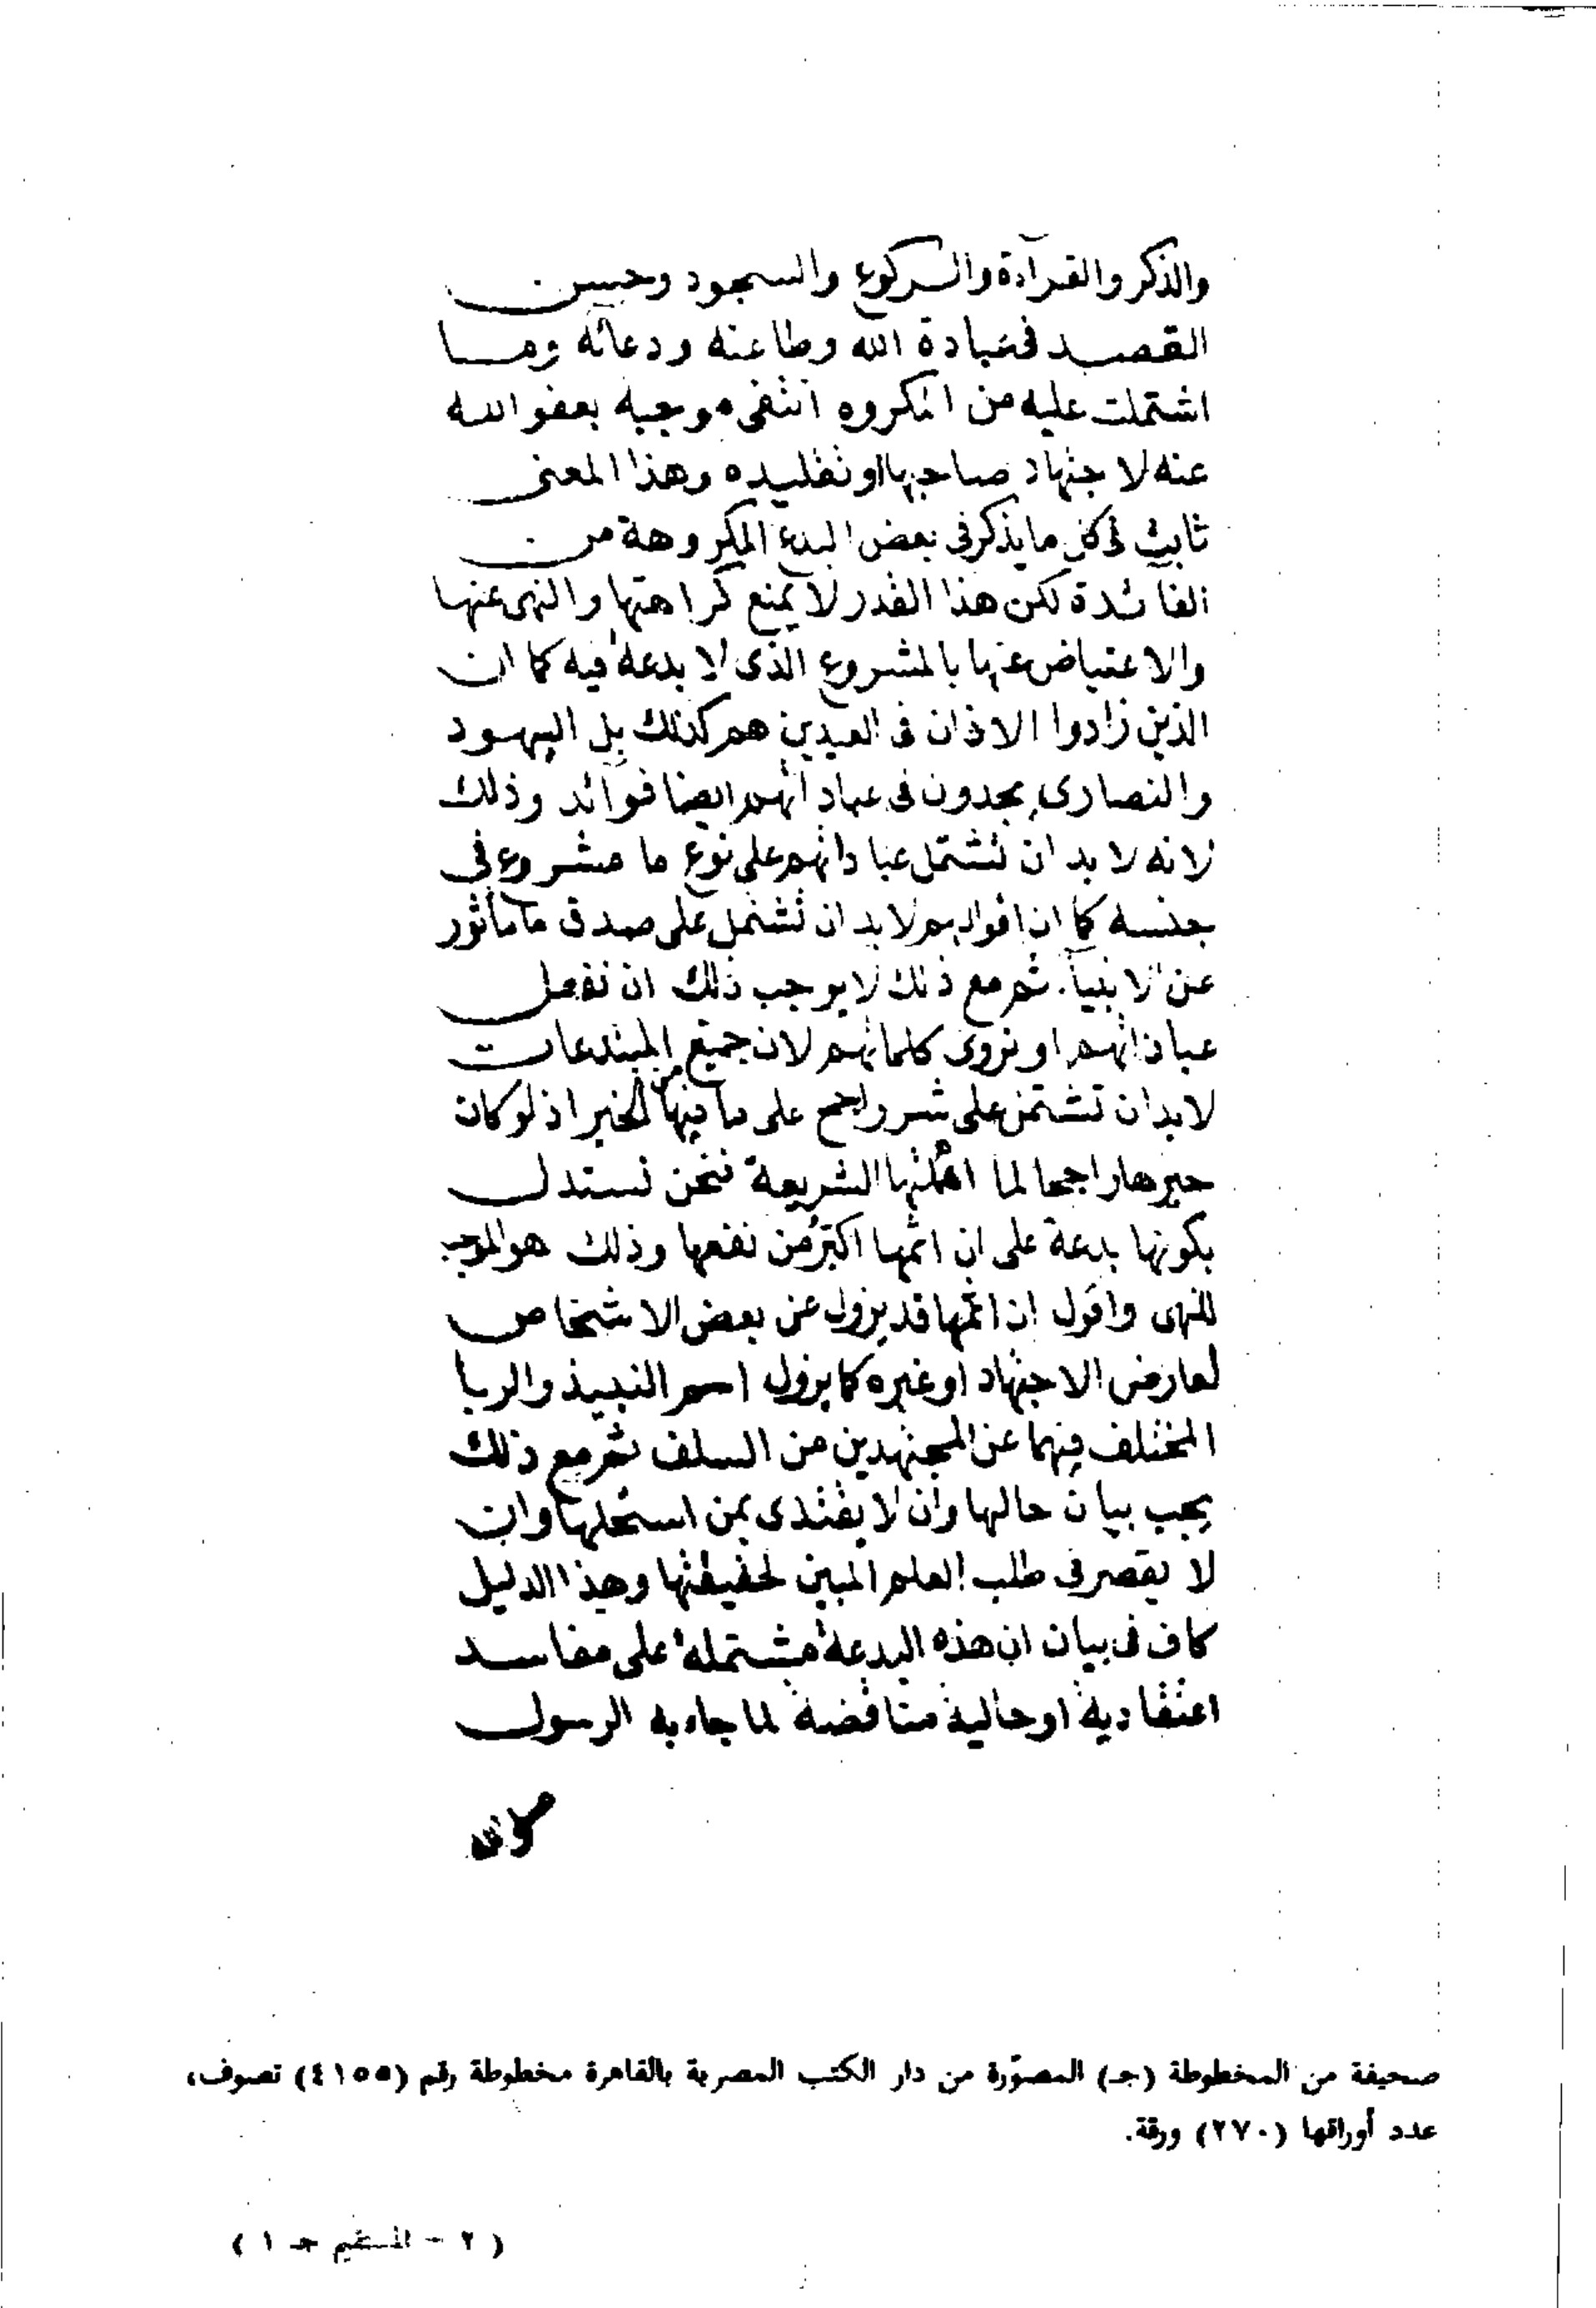 والذكر والقرآءة والركوع والسجود وحسن
القصد في عبادة الله وطاعته ودعائه وما
اشتملت عليه من المكروه انتفى موجبه بعفو الله
عنه لاجتهاد صاحبها او تقليده وهذا المعنى
ثابت في كل ما يذكر في بعض البدع المكروهة من
الفائدة لكن هذا القدر لا يمنع كراهتها والنهى عنها
والاعتياض عنها بالمشروع الذى لا بدعة فيه كما ان
الذين زادوا الاذان في العيدين هم كذلك بل اليهود
والنصارى يجدون في عباداتهم ايضا فوائد وذلك
لانه لا بد ان تشتمل عباداتهم على نوع ما مشروع في
جنسه كما ان اقوالهم لا بد ان تشتمل على صدق ما مأثور
عن الانبيآء ثم مع ذلك لا يوجب ذلك ان نفعل
عباداتهم او نروى كلماتهم لان جميع المبتدعات
لا بد ان تشتمل على شر راجح على ما فيها من الخير اذ لو كان
خيرها راجحا لما اهملتها الشريعة فنحن نستدل
بكونها بدعة على ان اثمها اكبر من نفعها وذلك هو الموجب
للنهى واقول ان اثمها قد يزول عن بعض الاشخاص
لعارض الاجتهاد او غيره كما يزول اسم النبيذ والربا
المختلف فيهما عن المجتهدين من السلف ثم مع ذلك
يجب بيان حالها وان لا يقتدى بمن استحلها وان
لا يقصر في طلب العلم المبين لحقيقتها وهذا الدليل
كاف في بيان ان هذه البدعة مشتملة على مفاسد
اعتقادية او حالية مناقضة لما جاء به الرسول
صحيفة من المخطوطة (جـ) المصوّرة من دار الكتب المصرية بالقاهرة مخطوطة رقم (٤١٥٥) تصوف،
عدد أوراقها (٢٧٠) ورقة.
( ٢ - المستقيم جـ ١ )